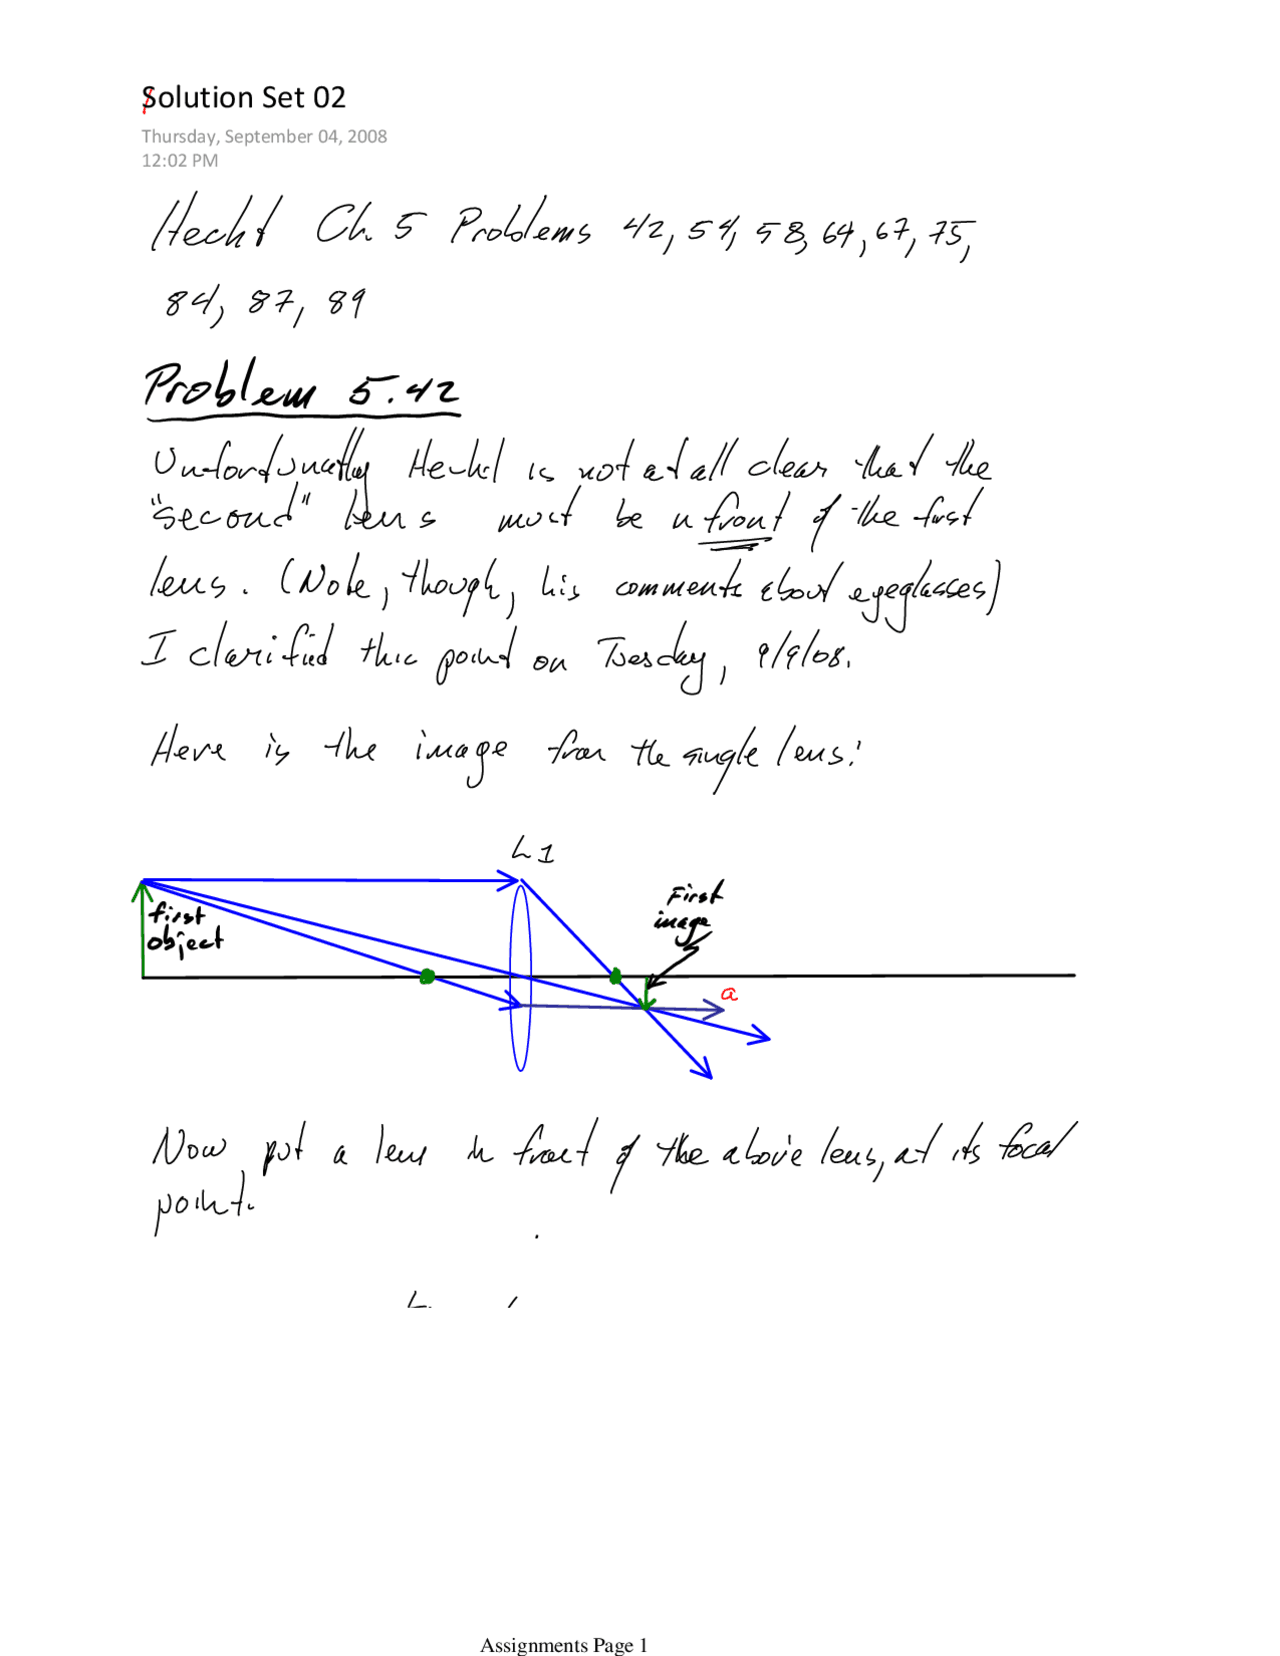 Solution Set 02
Thursday, September 04, 2008
12:02 PM
Hecht Ch 5 Problems 42, 54, 58, 64, 67, 75,
84, 87, 89
Problem 5.42
Unfortunately Hecht is not at all clear that the
"second" lens must be in front of the first
lens. (Note, though, his comments about eyeglasses)
I clarified this point on Tuesday, 9/9/08.
Here is the image from the single lens:
L1
First
image
first
object
a
Now put a lens in front of the above lens, at its focal
point.
Assignments Page 1